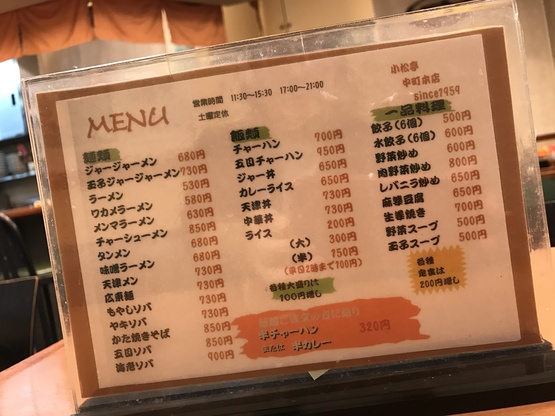 小松亭
中町本店
since1959
営業時間 11:30～15:30 17:00～21:00
土曜定休
MENU
麺類
ジャージャーメン 680円
玉子ジャージャーメン 730円
ラーメン 530円
ワカメラーメン 580円
メンマラーメン 630円
チャーシューメン 850円
タンメン 680円
味噌ラーメン 680円
天津メン 730円
広東麺 730円
もやしソバ 730円
ヤキソバ 730円
かた焼きそば 850円
五目ソバ 850円
海老ソバ 900円
飯類
チャーハン 700円
五目チャーハン 950円
ジャー丼 650円
カレーライス 650円
天津丼
中華丼
ライス
(大) 300円
(半)
(平日2時まで100円)
各種大盛りは
100円増し
一品料理
餃子(6個) 500円
水餃子(6個) 600円
野菜炒め 600円
肉野菜炒め 800円
レバニラ炒め 650円
麻婆豆腐 650円
生姜焼き 700円
野菜スープ 500円
玉子スープ 500円
各種
定食は
200円増し
半チャーハン 320円
または 半カレー